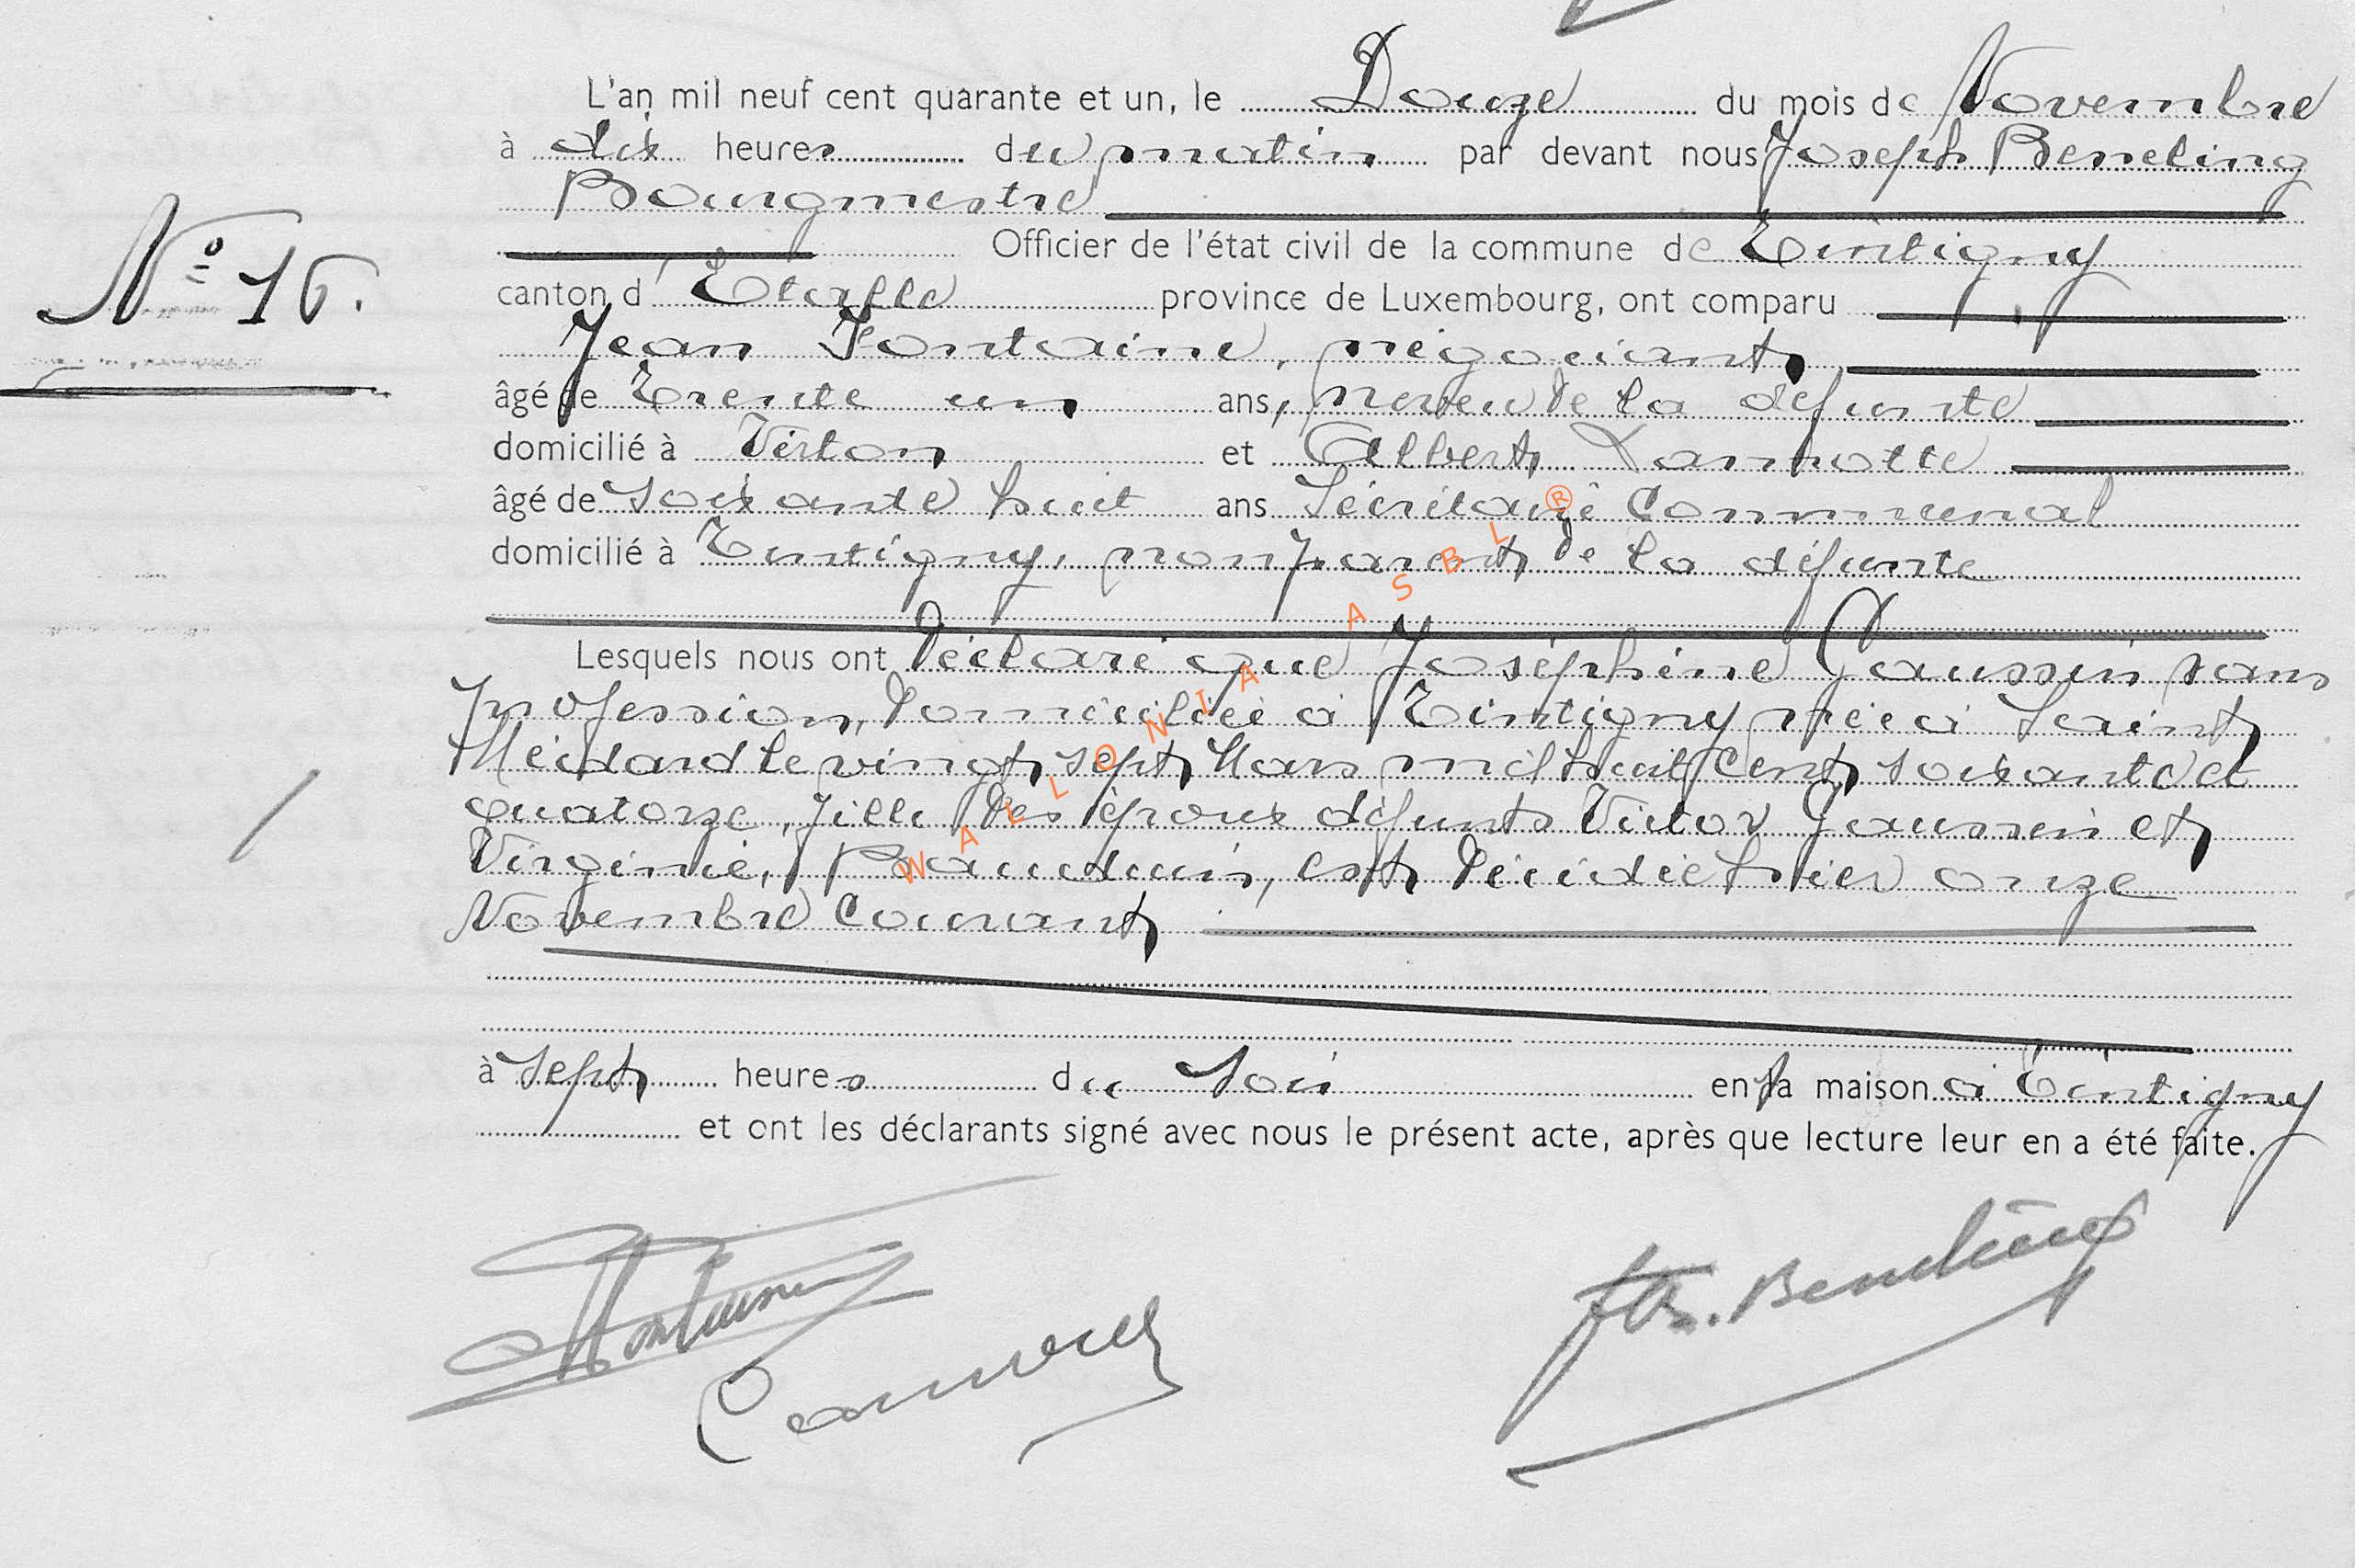 L'an mil neuf cent quarante et un, le Douze du mois de Novembre
à dix heures du matin par devant nous Joseph Beneling
Bourgmestre
Officier de l'état civil de la commune de Tintigny
N° 16.
canton d'Etalle province de Luxembourg, ont comparu
Jean Fontaine, négociant
âgé de Trente un ans, neveu de la défunte
domicilié à Virton et Albert Lannotte
âgé de soixante huit ans Sécrétaire Communal
domicilié à Tintigny, non parent de la défunte
Lesquels nous ont déclaré que Joséphine Gaussin sans
profession, domiciliée à Tintigny née à Saint
Médard le vingt sept Mars mil huit cent soixante et
quatorze, fille des époux défunts Victor Gaussin et
Virginie, est décédée hier onze
Novembre Courant
à sept heures du soir en sa maison à Tintigny
et ont les déclarants signé avec nous le présent acte, après que lecture leur en a été faite.
WALLONIA ASBL ®